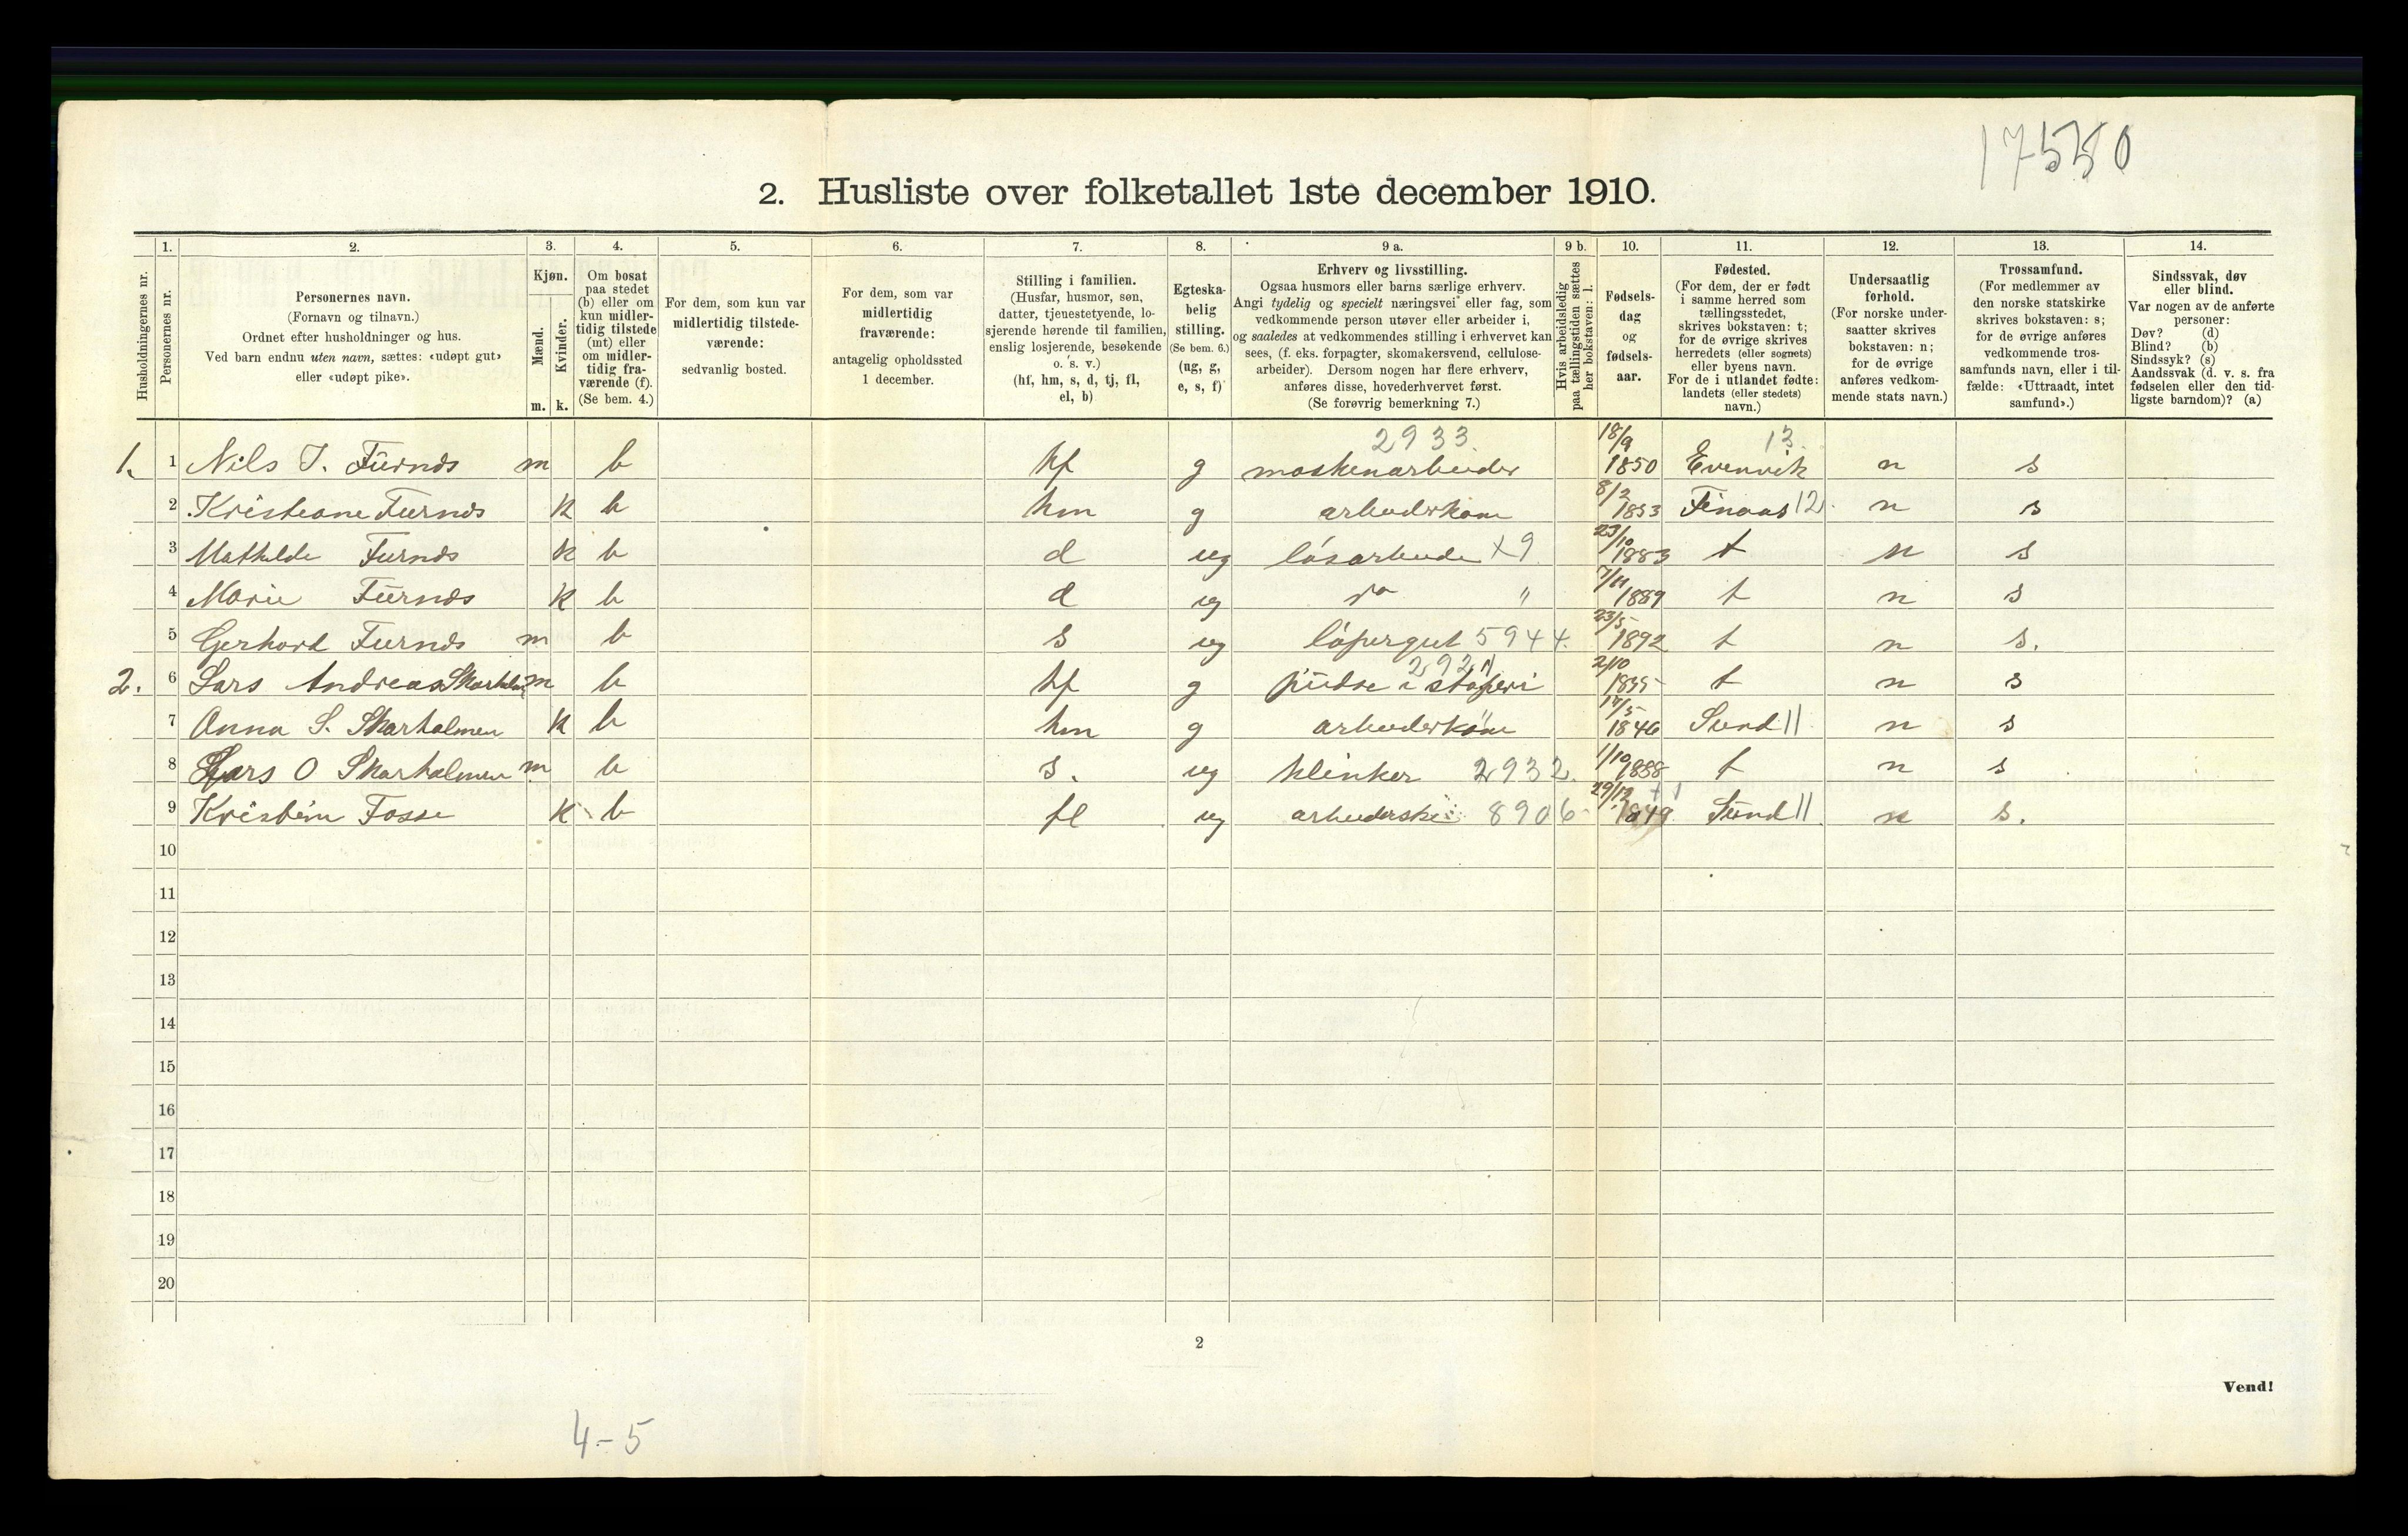 17550
2. Husliste over folketallet 1ste december 1910.
1. 2. 3. 4. 5. 6. 7. 8. 9 a. 9 b. 10. 11. 12. 13. 14.
Husholdningernes nr.
Personernes nr.
Personernes navn.
(Fornavn og tilnavn.)
Ordnet efter husholdninger og hus.
Ved barn endnu uten navn, sættes: «udøpt gut»
eller «udøpt pike».
Kjøn.
Mænd.
Kvinder.
m. k.
Om bosat
paa stedet
(b) eller om
kun midler-
tidig tilstede
(mt) eller
om midler-
tidig fra-
værende (f).
(Se bem. 4.)
For dem, som kun var
midlertidig tilstede-
værende:
sedvanlig bosted.
For dem, som var
midlertidig
fraværende:
antagelig opholdssted
1 december.
Stilling i familien.
(Husfar, husmor, søn,
datter, tjenestetyende, lo-
sjerende hørende til familien,
enslig losjerende, besøkende
o. s. v.)
(hf, hm, s, d, tj, fl,
el, b)
Egteska-
belig
stilling.
(Se bem. 6.)
(ug, g,
e, s, f)
Erhverv og livsstilling.
Ogsaa husmors eller barns særlige erhverv.
Angi tydelig og specielt næringsvei eller fag, som
vedkommende person utøver eller arbeider i,
og saaledes at vedkommendes stilling i erhvervet kan
sees, (f. eks. forpagter, skomakersvend, cellulose-
arbeider). Dersom nogen har flere erhverv,
anføres disse, hovederhvervet først.
(Se forøvrig bemerkning 7.)
Hvis arbeidsledig
paa tællingstiden sættes
her bokstaven: l.
Fødsels-
dag
og
fødsels-
aar.
Fødested.
(For dem, der er født
i samme herred som
tællingsstedet,
skrives bokstaven: t;
for de øvrige skrives
herredets (eller sognets)
eller byens navn.
For de i utlandet fødte:
landets (eller stedets)
navn.)
Undersaatlig
forhold.
(For norske under-
saatter skrives
bokstaven: n;
for de øvrige
anføres vedkom-
mende stats navn.)
Trossamfund.
(For medlemmer av
den norske statskirke
skrives bokstaven: s;
for de øvrige anføres
vedkommende tros-
samfunds navn, eller i til-
fælde: «Uttraadt, intet
samfund».)
Sindssvak, døv
eller blind.
Var nogen av de anførte
personer:
Døv? (d)
Blind? (b)
Sindssyk? (s)
Aandssvak (d. v. s. fra
fødselen eller den tid-
ligste barndom)? (a)
2933. 18/9 13.
1. 1 Nils J. Furnæs m b hf g maskenarbeider 1850 Evenvik n s
2 Kristiane Furnæs k b hm g arbeiderkone 8/2 1853 Finaas 12. n s
3 Mathilde Furnæs k b d ug løsarbeide x9 23/10 1883 t n s
4 Marie Furnæs k b d ug " 7/11 1889 t n s
5 Gerhard Furnæs m b s ug løpergut 5944. 23/5 1892 t n s.
2. 6 Lars Andreas Skarholm m b hf g pudse i støperi 2921 2/10 t n s
7 Anna S. Skarholmen k b hm g arbeiderkone 17/5 1846 Sund 11 n s
8 Lars O Skarholmen m b s. ug klinker 2932. 1/10 1888 t n s
9 Kristine Fosse k b fl ug arbeiderske 8906 29/12 1849 Sund 11 n s.
10
11
12
13
14
15
16
17
18
19
20
2
Vend!
4-5